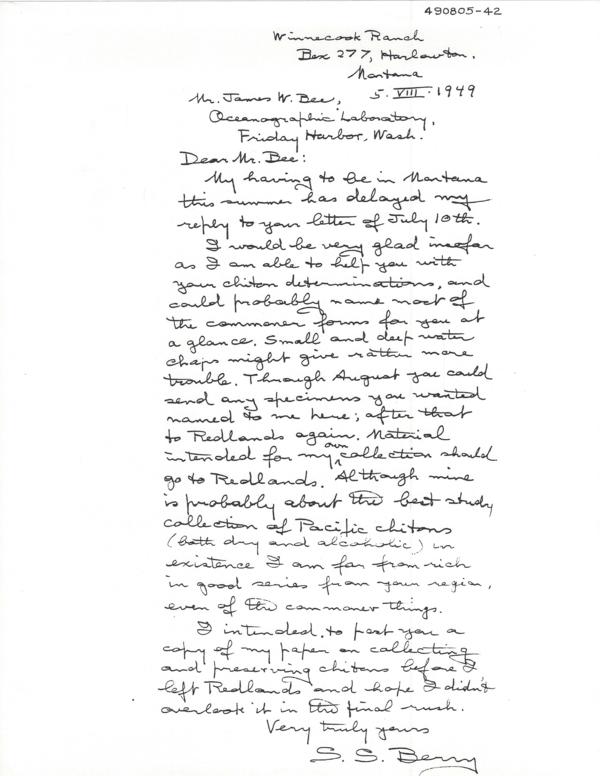 490805-42
Winnecook Ranch
Box 277, Harlowton.
Montana
5. VIII. 1949
Mr. James W. Bee,
Oceanographic Laboratory,
Friday Harbor, Wash.
Dear Mr. Bee:
My having to be in Montana
this summer has delayed my
reply to your letter of July 10th.
I would be very glad insofar
as I am able to help you with
your chiton determinations, and
could probably name most of
the commoner forms for you at
a glance. Small and deep water
chaps might give rather more
trouble. Through August you could
send any specimens you wanted
named to me here; after that
to Redlands again. Material
intended for my own collection should
go to Redlands. Although mine
is probably about the best study
collection of Pacific chitons
(both dry and alcoholic) in
existence I am far from rich
in good series from your region,
even of the commoner things.
I intended to post you a
copy of my paper on collecting
and preserving chitons before I
left Redlands and hope I didn't
overlook it in the final rush.
Very truly yours
S. S. Berry